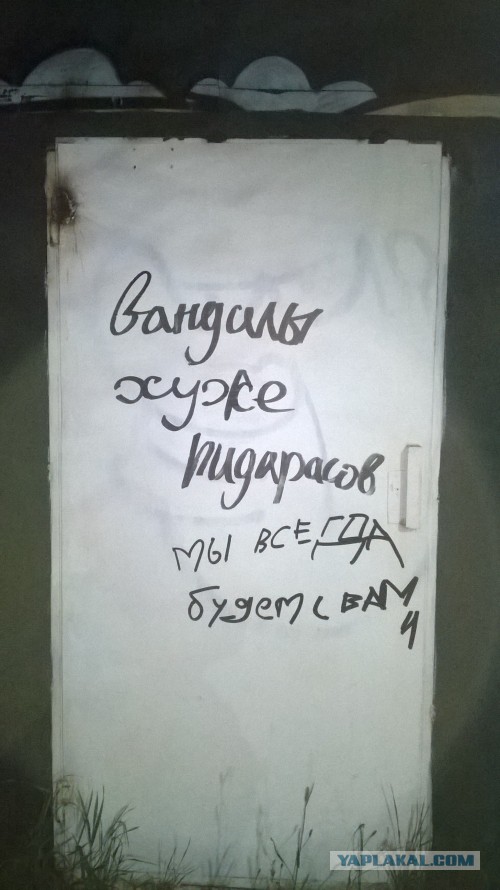 вандалы
хуже
пидарасов
МЫ ВСЕГДА
будем с ВАМИ
YAPLAKAL.COM